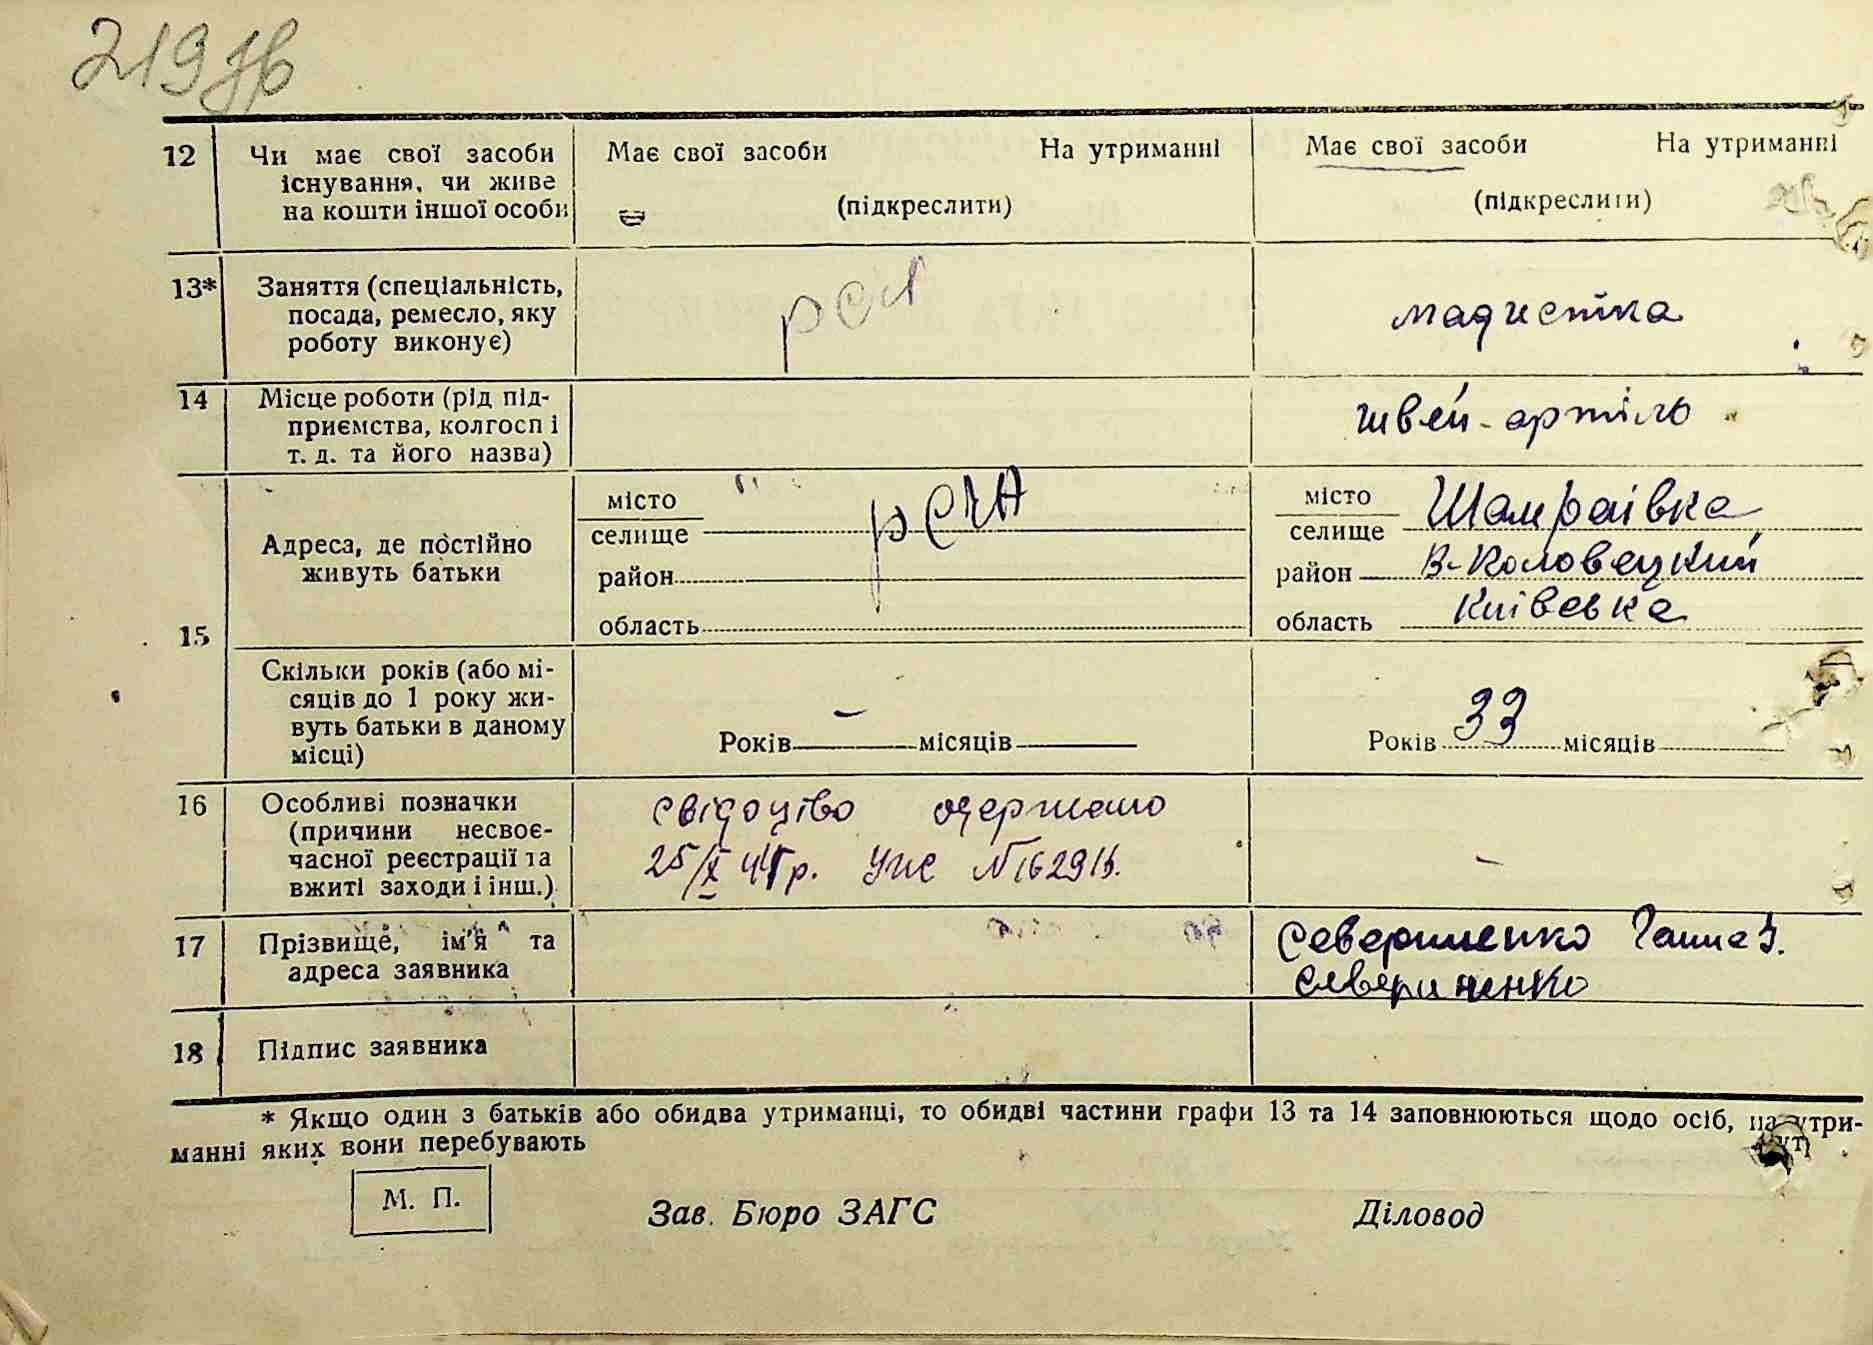 219зв
12 Чи має свої засоби існування, чи живе на кошти іншої особи
Має свої засоби На утриманні
(підкреслити)
Має свої засоби На утриманні
(підкреслити)
13* Заняття (спеціальність, посада, ремесло, яку роботу виконує)
мадистка
14 Місце роботи (рід підприємства, колгосп і т. д. та його назва)
швей-артіль
15 Адреса, де постійно живуть батьки
місто
селище
район
область
місто
селище Шамраівка
район В-Половецкий
область Київська
Скільки років (або місяців до 1 року живуть батьки в даному місці)
Років – місяців
Років 33 місяців
16 Особливі позначки (причини несвоєчасної реєстрації та вжиті заходи і інш.)
свідоцтво одержано
25/X 44 р. УЖС №
–
17 Прізвище, ім'я та адреса заявника
Севериненко Ганна
Севериненко
18 Підпис заявника
* Якщо один з батьків або обидва утриманці, то обидві частини графи 13 та 14 заповнюються щодо осіб, на утри-
манні яких вони перебувають
М. П.
Зав. Бюро ЗАГС
Діловод